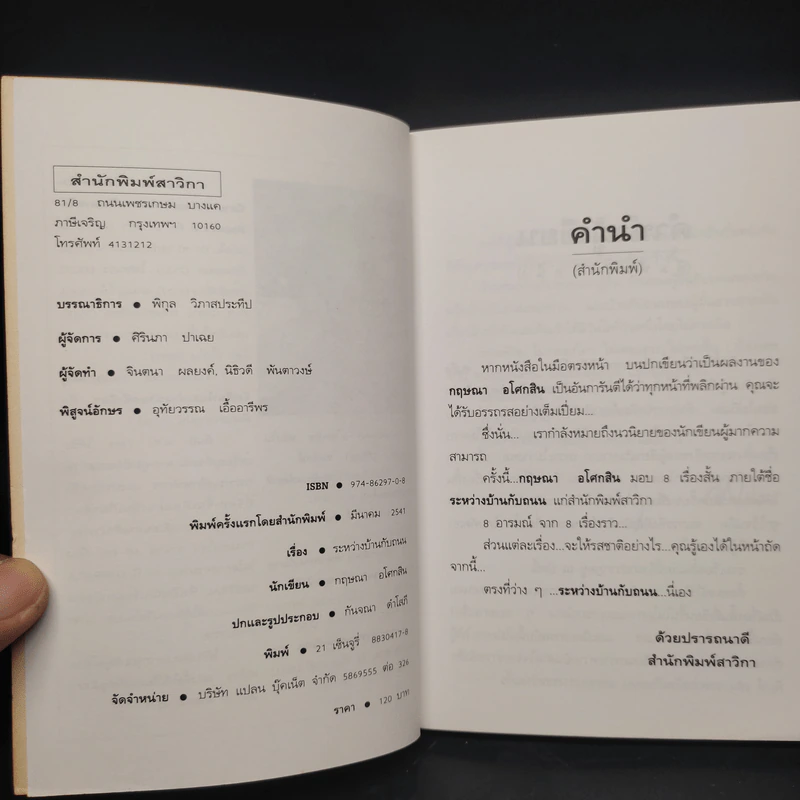 สำนักพิมพ์สาวิกา
81/8 ถนนเพชรเกษม บางแค
ภาษีเจริญ กรุงเทพฯ 10160
โทรศัพท์ 4131212
บรรณาธิการ ● พิกุล วิภาสประทีป
ผู้จัดการ ● ศิรินภา ปาเฉย
ผู้จัดทำ ● จินตนา ผลยงค์, นิธิวดี พันตาวงษ์
พิสูจน์อักษร ● อุทัยวรรณ เอื้ออารีพร
ISBN ● 974-86297-0-8
พิมพ์ครั้งแรกโดยสำนักพิมพ์ ● มีนาคม 2541
เรื่อง ● ระหว่างบ้านกับถนน
นักเขียน ● กฤษณา อโศกสิน
ปกและรูปประกอบ ● กันจณา ดำโสภี
พิมพ์ ● 21 เซ็นจูรี่ 8830417-8
จัดจำหน่าย ● บริษัท แปลน บุ๊คเน็ต จำกัด 5869555 ต่อ 326
ราคา ● 120 บาท
คำนำ
(สำนักพิมพ์)
หากหนังสือในมือตรงหน้า บนปกเขียนว่าเป็นผลงานของ
กฤษณา อโศกสิน เป็นอันการันตีได้ว่าทุกหน้าที่พลิกผ่าน คุณจะ
ได้รับอรรถรสอย่างเต็มเปี่ยม...
ซึ่งนั่น... เรากำลังหมายถึงนวนิยายของนักเขียนผู้มากความ
สามารถ
ครั้งนี้...กฤษณา อโศกสิน มอบ 8 เรื่องสั้น ภายใต้ชื่อ
ระหว่างบ้านกับถนน แก่สำนักพิมพ์สาวิกา
8 อารมณ์ จาก 8 เรื่องราว...
ส่วนแต่ละเรื่อง...จะให้รสชาติอย่างไร...คุณรู้เองได้ในหน้าถัด
จากนี้...
ตรงที่ว่าง ๆ ...ระหว่างบ้านกับถนน...นี่เอง
ด้วยปรารถนาดี
สำนักพิมพ์สาวิกา